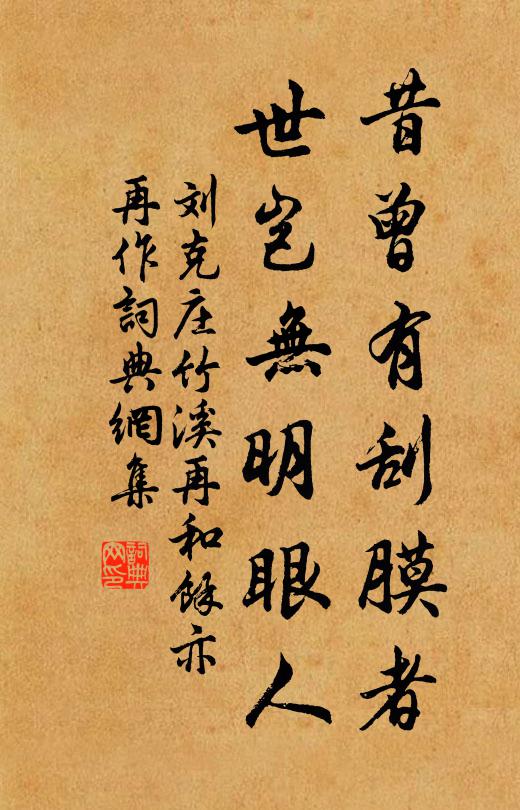 昔曾有刮膜者
世岂無明眼人
刘克庄竹溪再和馀亦
再作詞典網集
詞典网印